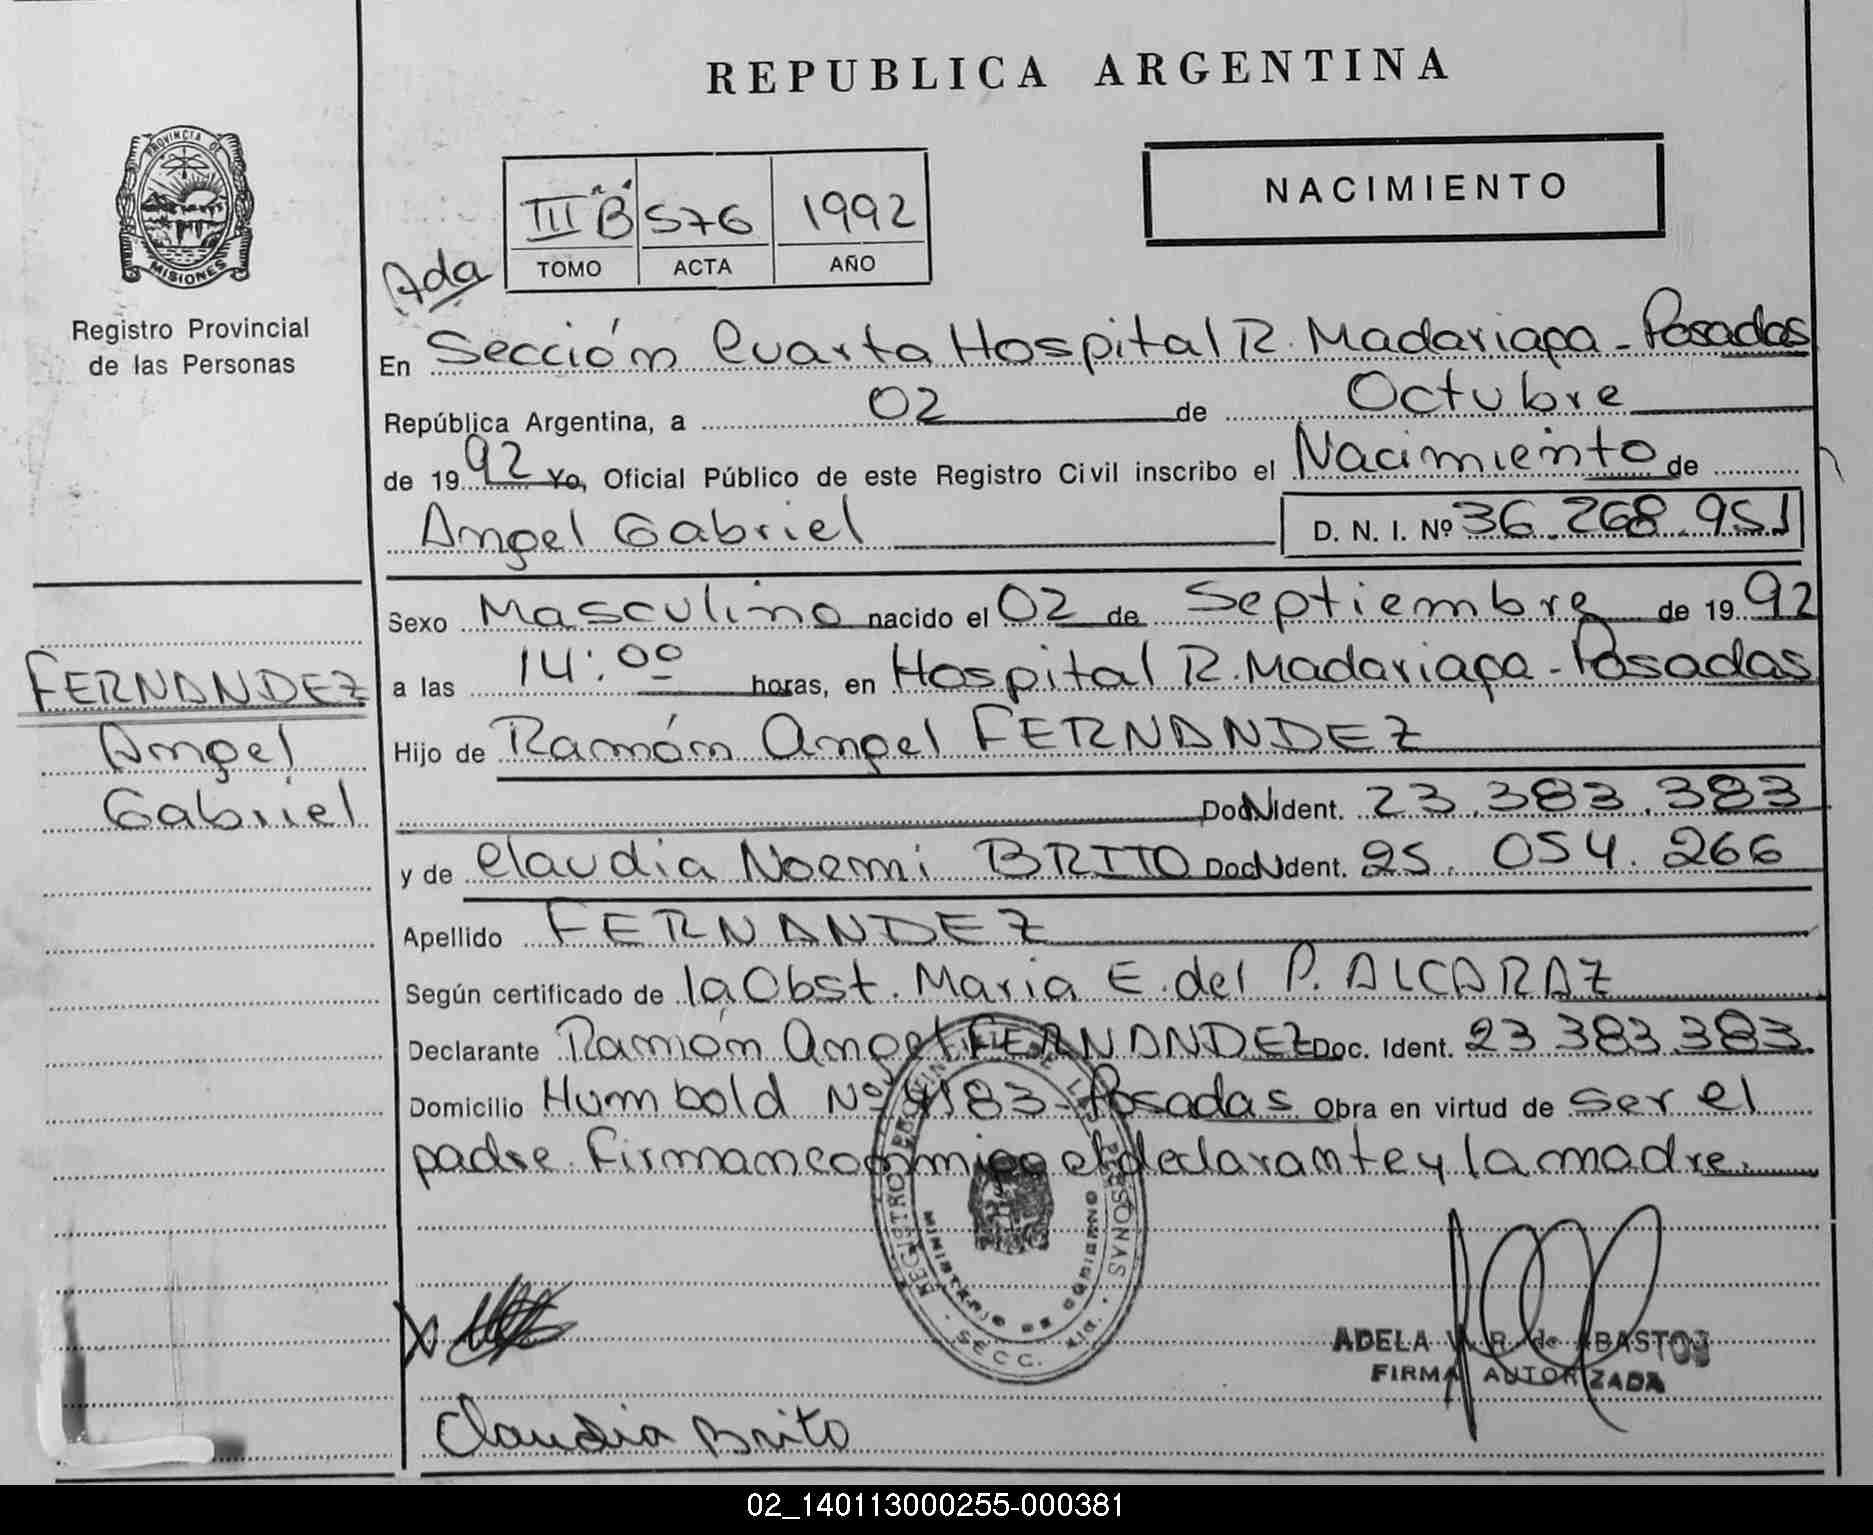 REPUBLICA ARGENTINA
PROVINCIA DE
MISIONES
Registro Provincial
de las Personas
III "B" 576 1992
TOMO ACTA AÑO
NACIMIENTO
Ada
En Sección Cuarta Hospital R. Madariaga - Posadas
República Argentina, a 02 de Octubre
de 1992 Yo, Oficial Público de este Registro Civil inscribo el Nacimiento de
Angel Gabriel D. N. I. Nº 36.268.951
Sexo Masculino nacido el 02 de Septiembre de 1992
a las 14:00 horas, en Hospital R. Madariaga - Posadas
Hijo de Ramón Angel FERNANDEZ
Doc. Ident. 23.383.383
y de Claudia Noemi BRITO Doc. Ident. 25.054.266
Apellido FERNANDEZ
Según certificado de la Obst. Maria E. del P. ALCARAZ
Declarante Ramón Angel FERNANDEZ Doc. Ident. 23.383.383
Domicilio Humbold Nº 4183 - Posadas Obra en virtud de ser el
padre. Firman conmigo el declarante y la madre.
FERNANDEZ
Angel
Gabriel
REGISTRO PROVINCIAL DE LAS PERSONAS
MINISTERIO DE GOBIERNO
SECC.
ADELA V. R. de ABASTOS
FIRMA AUTORIZADA
Claudia Brito
02_140113000255-000381